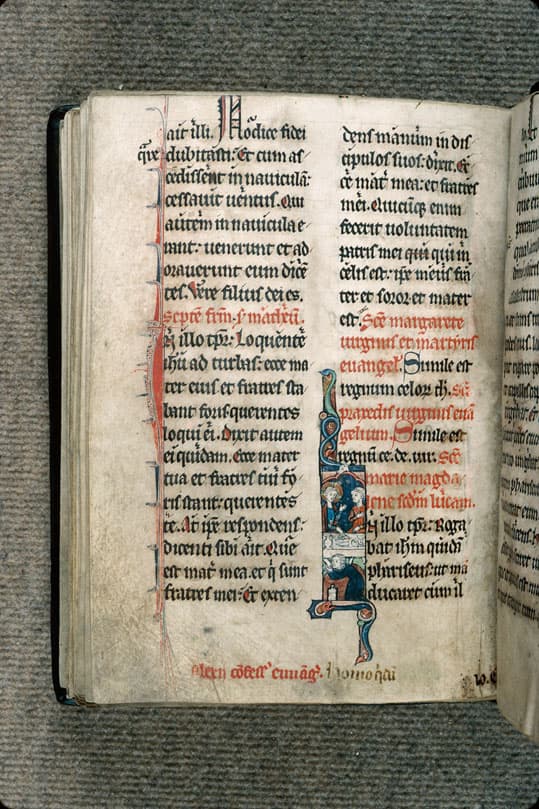 ait illi. Modice fidei
quare dubitasti: Et cum as-
cedissent in nauiculā:
cessauit uentus. Qui
autem in nauicula e-
rant: uenerunt et ad
orauerunt eum dicē
tes. Vere filius dei es.
Septē frm. s. mathm̄.
In illo tp̄r: Loquente
ihū ad turbas: ecce ma
ter eius et fratres sta
bant foris querentes
loqui ei. Dixit autem
ei quidam. Ecce mater
tua et fratres tui fo
ris stant: querentes
te. At ip̄e respondens:
dicenti sibi ait. Que
est mat̄ mea. et q̄ sunt
fratres mei: Et exten
alexii cōfess' euuāḡ. Homo q̄dā
dens manum in dis
cipulos suos: dixit. Ec
ce mat̄ mea: et fratres
mei. Quicūq̄ enim
fecerit uoluntatem
patris mei qui qui in
celis est: ip̄e meus fra
ter et soror et mater
est. Sc̄e margarete
uirginis et martyris
euangel'. Simile est
regnum celor̄. th. Sc̄e
praxedis uirginis euā
gelium. Simile est
regnū ce. de. uir. Sc̄e
marie magda
lene scd̄m lucam.
In illo tp̄r: Roga
bat ihm̄ quidā
phariseus: ut mā
ducaret cum il